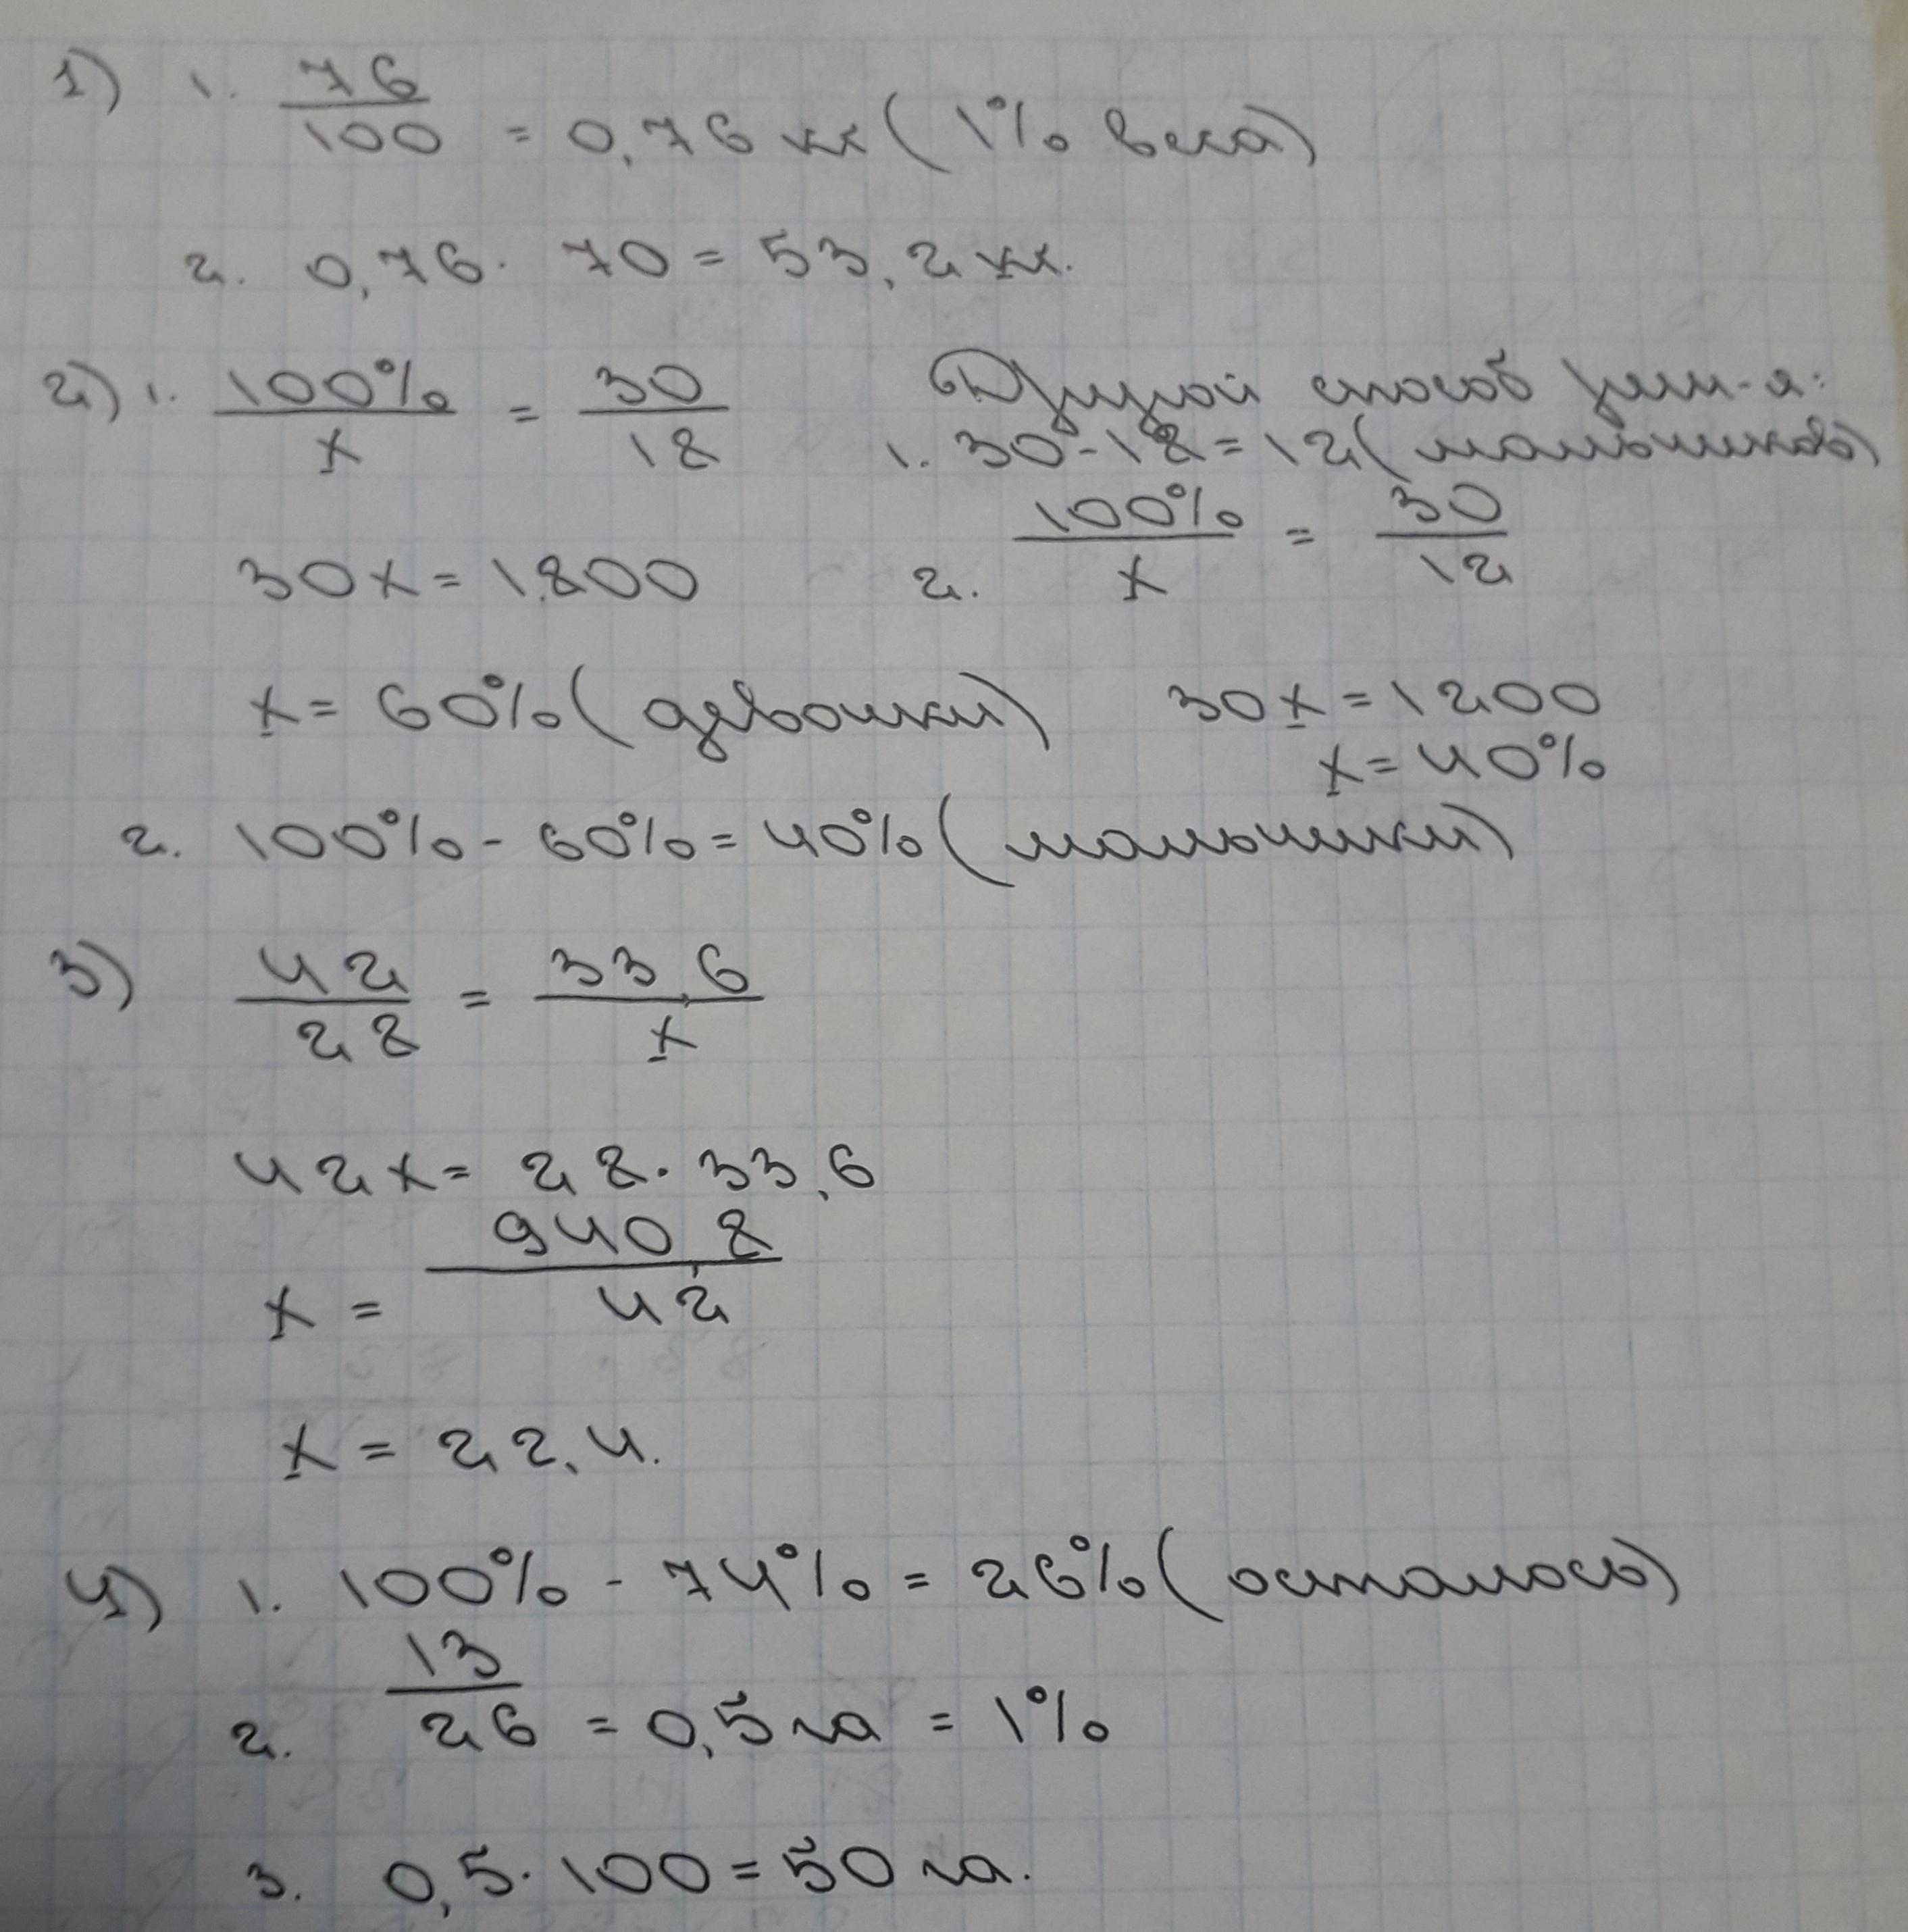 1) 1. 76/100 = 0,76 кг (1% веса)
2. 0,76 · 70 = 53,2 кг.
2) 1. 100%/x = 30/18
30x = 1800
x = 60% (девочки)
2. 100% - 60% = 40% (мальчики)
Другой способ реш-я:
1. 30 - 18 = 12 (мальчиков)
2. 100%/x = 30/12
30x = 1200
x = 40%
3) 42/28 = 33,6/x
42x = 28 · 33,6
x = 940,8/42
x = 22,4.
4) 1. 100% - 74% = 26% (осталось)
2. 13/26 = 0,5 га = 1%
3. 0,5 · 100 = 50 га.